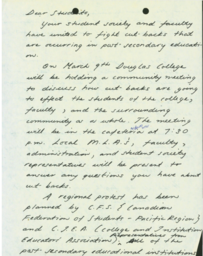 Dear Students,
Your student society and faculty
have united to fight cut backs that
are occurring in post-secondary educat-
ion.
On March 9th Douglas College
will be holding a community meeting
to discuss how cut backs are going
to effect the students of the college,
faculty, and the surrounding
community as a whole. The meeting
will be in the cafeteria at 7:30
p.m. Local M.L.A.'s, faculty,
administration, and student society
representatives will be present to
answer any questions you have
about cut backs
A regional protest has been
planned by C.F.S. (Canadian
Federation of Students - Pacific Region)
and C.I.E.A (College and Institution
Educator Association), of the
post secondary educational institutions